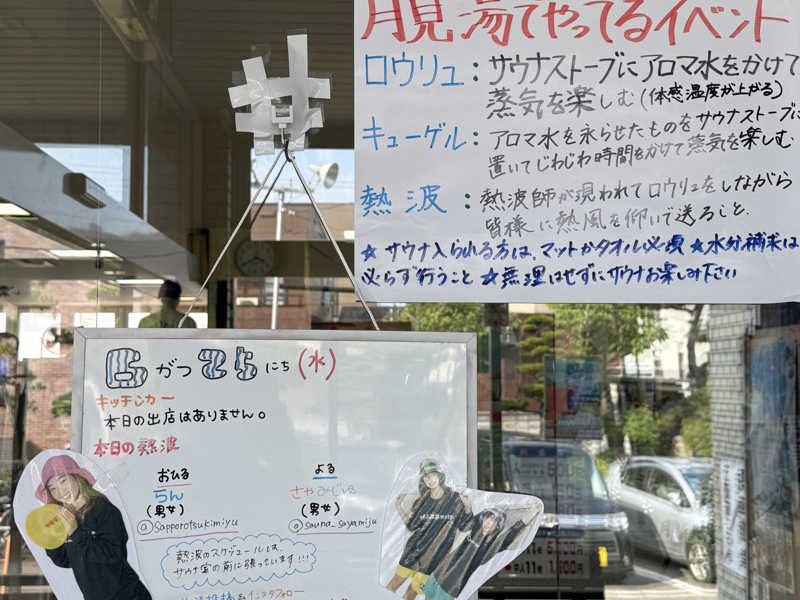 月見湯でやってるイベント
ロウリュ：サウナストーブにアロマ水をかけて
蒸気を楽しむ(体感温度が上がる)
キューゲル：アロマ水を氷らせたものをサウナストーブに
置いてじわじわ時間をかけて蒸気を楽しむ
熱波：熱波師が現われてロウリュをしながら
皆様に熱風を仰いで送ること.
★サウナ入られる方は、マットかタオル必須★水分補求は
必らず行うこと★無理はせずにサウナお楽しみ下さい
がつ25にち(水)
キッチンカー
本日の出店はありません。
本日の熱波
おひる
らん
(男女)
@sapporotsukimiyu
よる
さやみじゅる
(男女)
@sauna_sayamiju
熱波のスケジュールは
サウナ室の前に張っています!!!
インスタフォロー